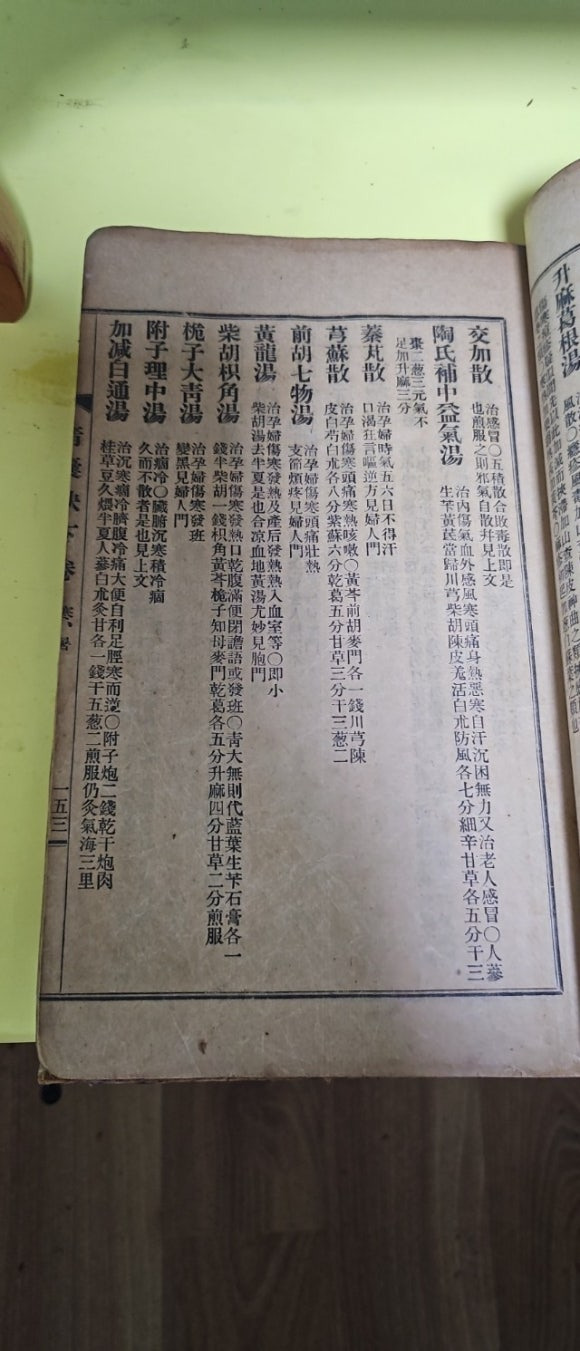 升麻葛根湯
交加散
治感冒〇五積散合敗毒散即是
也煎服之則邪氣自散幷見上文
陶氏補中益氣湯
治內傷氣血外感風寒頭痛身熱惡寒自汗沉困無力又治老人感冒〇人蔘
生苄黃芪當歸川芎柴胡陳皮羗活白朮防風各七分細辛甘草各五分干三
棗二葱三元氣不
足加升麻三分
蓁芃散
治孕婦時氣五六日不得汗
口渴狂言嘔逆方見婦人門
芎蘇散
治孕婦傷寒頭痛寒熱咳嗽〇黃芩前胡麥門各一錢川芎陳
皮白芍白朮各八分紫蘇六分乾葛五分甘草三分干三葱二
前胡七物湯
治孕婦傷寒頭痛壯熱
支節煩疼見婦人門
黃龍湯
治孕婦傷寒發熱及產后發熱熱入血室等〇即小
柴胡湯去半夏是也合凉血地黃湯尤妙見胞門
柴胡枳角湯
治孕婦傷寒發熱口乾腹滿便閉譫語或發班〇青大無則代藍葉生苄石膏各一
錢半柴胡一錢枳角黃芩梔子知母麥門乾葛各五分升麻四分甘草二分煎服
梔子大靑湯
治孕婦傷寒發班
變黑見婦人門
附子理中湯
治痼冷〇臟腑沉寒積冷痼
久而不散者是也見上文
加減白通湯
治沉寒痼冷臍腹冷痛大便自利足脛寒而逆〇附子炮二錢乾干炮肉
桂草豆久煨半夏人蔘白朮灸甘各一錢干五葱二煎服仍灸氣海三里
一五三